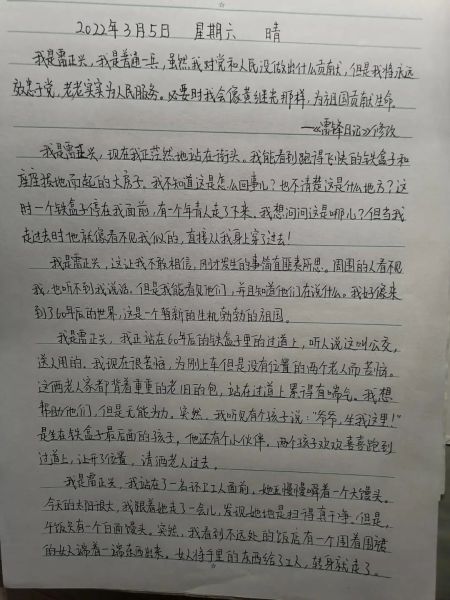 2022年3月5日 星期六 晴
我是雷正兴,我是普通一兵,虽然我对党和人民没做出什么贡献,但是我将永远
效忠于党,老老实实为人民服务。必要时我会像黄继光那样,为祖国贡献生命。
——《雷锋日记》修改
我是雷正兴,现在我正茫然地站在街头。我能看到跑得飞快的铁盒子和
座座拔地而起的大房子。我不知道这是怎么回事儿?也不清楚这是什么地方?这
时一个铁盒子停在我面前,有一个年青人走了下来。我想问问这是哪儿?但当我
走过去时他就像看不见我似的,直接从我身上穿了过去!
我是雷正兴,这让我不敢相信,刚才发生的事简直匪夷所思。周围的人看不见
我,也听不到我说话,但是我能看见他们,并且知道他们在说什么。我好像来
到了60年后的世界,这是一个暂新的生机勃勃的祖国。
我是雷正兴,我正站在60年后的铁盒子里的过道上,听人说这叫公交,
送人用的。我现在很苦恼,为刚上车但是没有位置的两个老人而苦恼。
这两老人家都背着重重的老旧的包,站在过道上累得直喘气。我想
帮助他们,但是无能为力。突然,我听见有个孩子说:“爷爷,坐我这里!”
是坐在铁盒子最后面的孩子,他还有个小伙伴,两个孩子欢欢喜喜跑到
过道上,让开了位置,请俩老人过去。
我是雷正兴,我站在了一名环卫工人面前,她正慢慢嚼着一个大馒头。
今天的太阳很大,我跟着她走了一会儿,发现她地是扫得真干净,但是,
午饭只有一个白面馒头。突然,我看到不远处的饭店有一个围着围裙
的女人端着一端东西出来。女人将手里的东西给了工人,转身就走了。